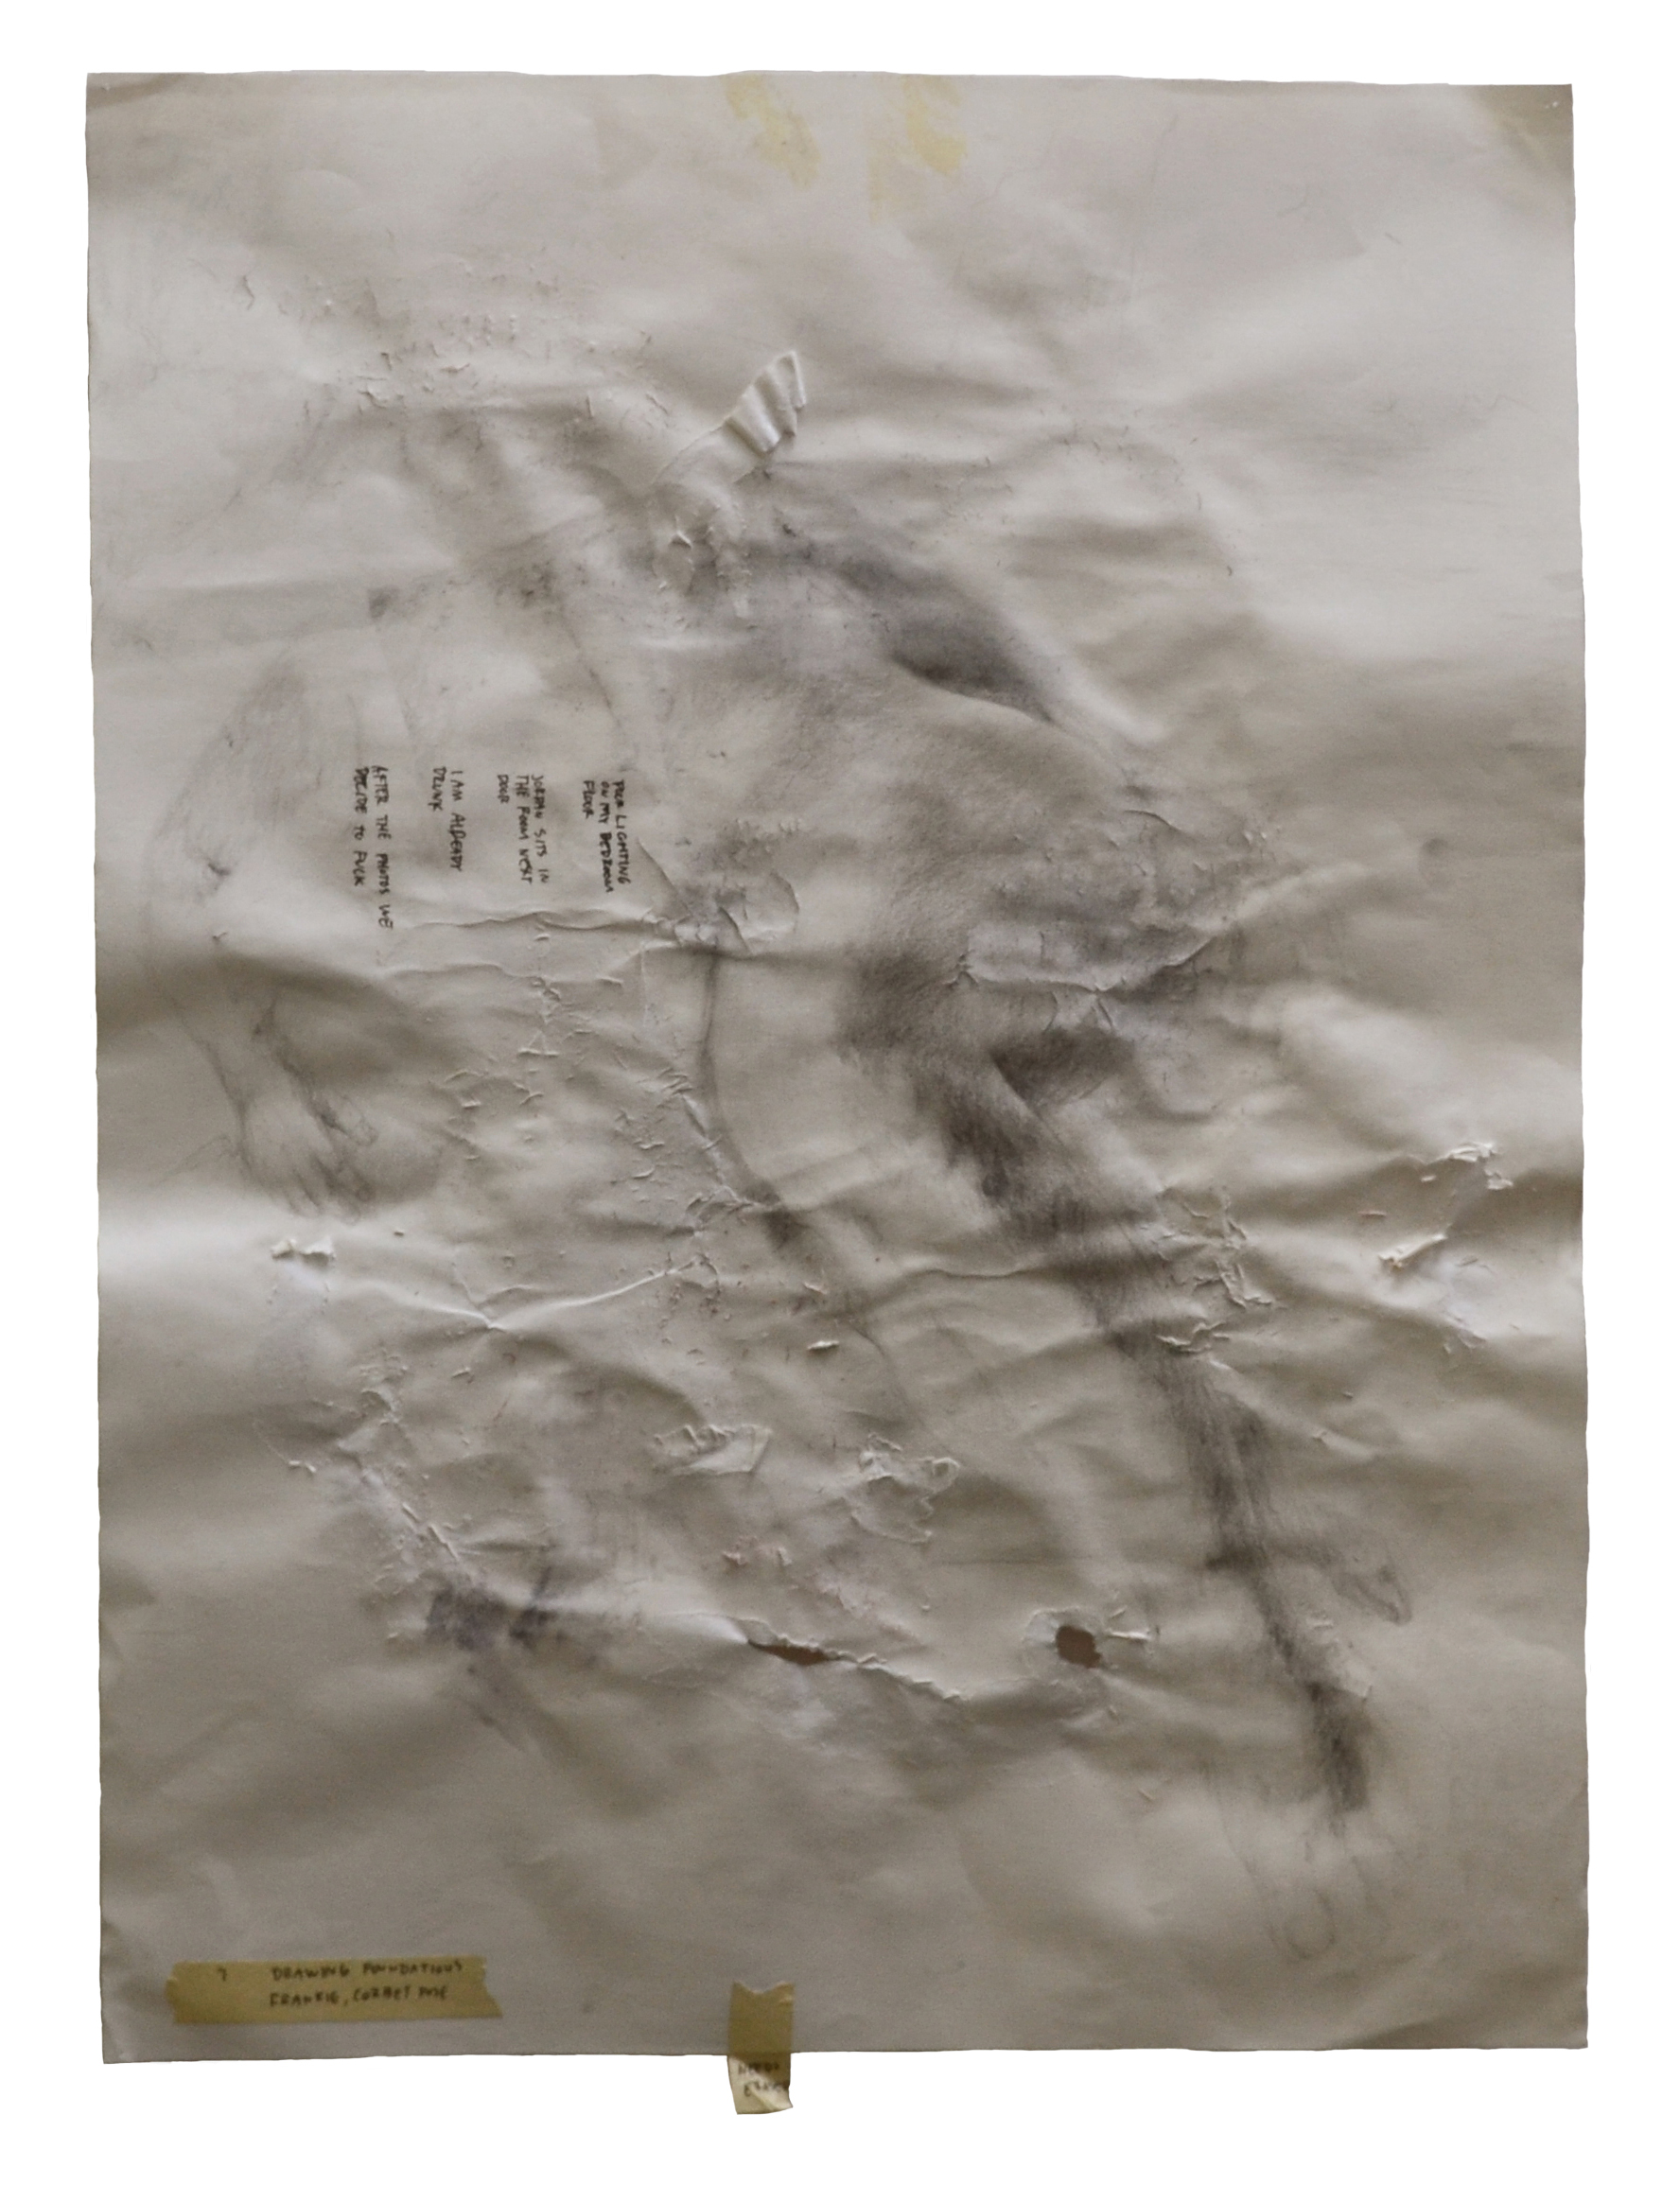 POOR LIGHTING
ON MY BEDROOM
FLOOR
JORDAN SITS IN
THE ROOM NEXT
DOOR
I AM ALREADY
DRUNK
AFTER THE PHOTOS WE
DECIDE TO FUCK
7 DRAWING FOUNDATIONS
FRANKIE, CORBET POSE